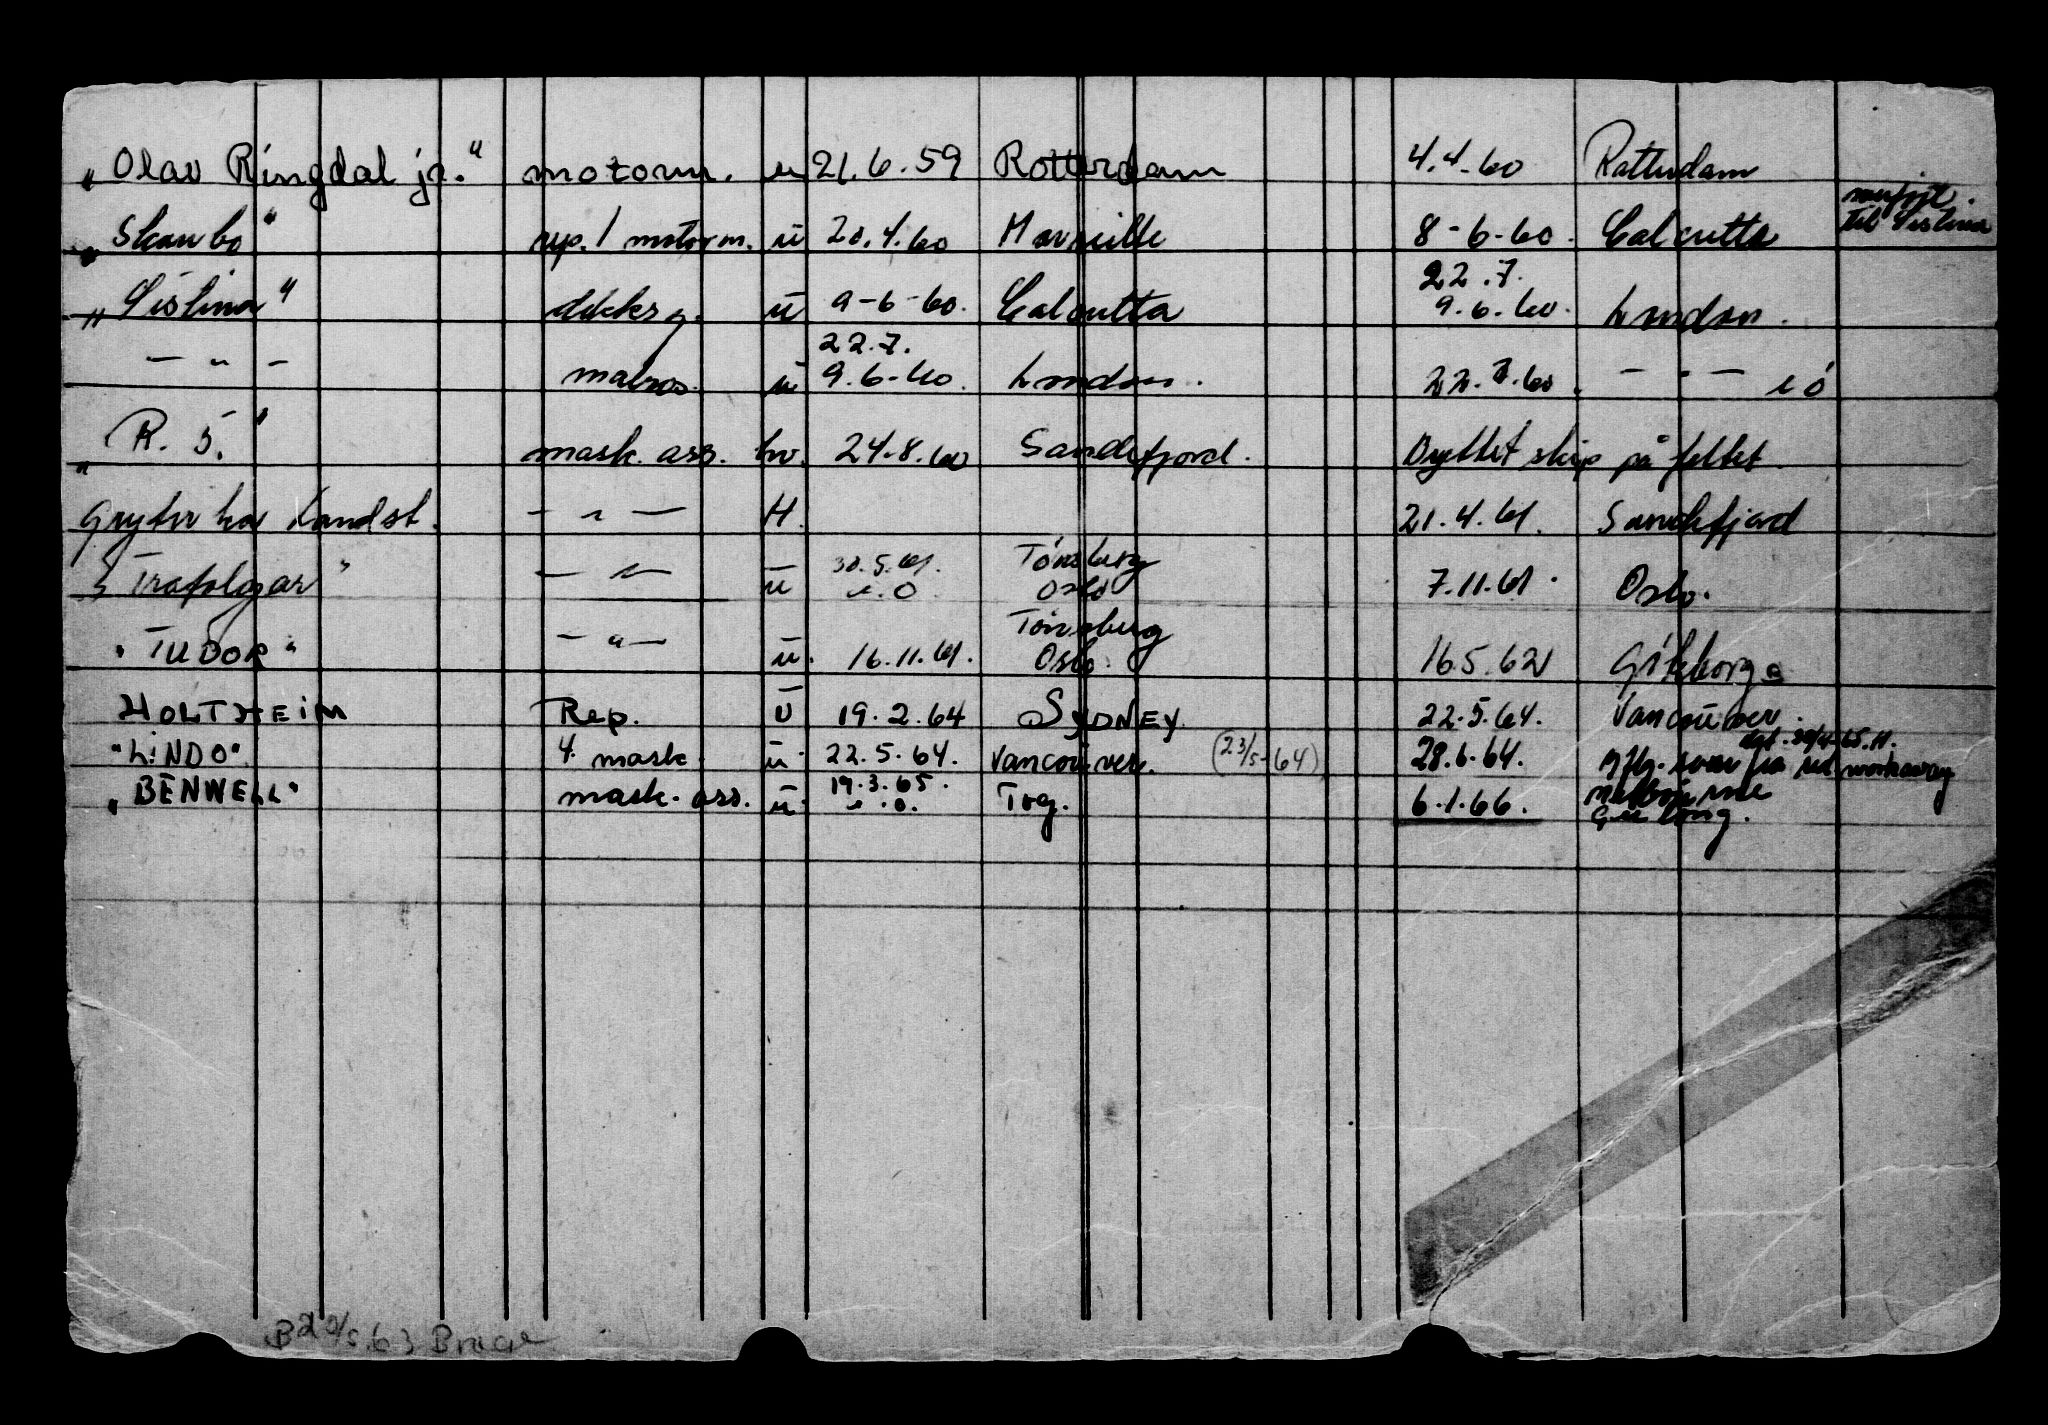 "Olav Ringdal jr." motorm. u 21.6.59 Rotterdam 4.4.60 Rotterdam
"Skanbo" rep./motorm. u 20.4.60 Marseille 8-6-60. Calcutta til Sistina
22.7.
"Sistina" dekksg. u 9-6-60. Calcutta 9.6.60. London.
22.7.
— " — matros. u 9.6-60. London. 22.7.60. — " — i ó
"R. 5." mask. ass. hv. 24.8.60 Sandefjord. Byttet skip på feltet.
Gryter hos Kondst. — " — H. 21.4.61. Sandefjord
30.5.61. Tønsberg
"Trafalgar" — " — u i.O Oslo 7.11.61. Oslo.
Tønsberg
"TUDOR" — " — u. 16.11.61. Oslo. 16.5.62 Gøteborg
HOLTHEIM Rep. U 19.2.64 SYDNEY. 22.5.64. Vancouver.
dgt. 30/4-65.H.
"LINDO" 4. mask. u. 22.5.64. Vancouver. (23/5-64) 28.6.64. workaway
19.3.65. Melbourne
"BENWELL" mask. ass. u. i.o. Tog. 6.1.66. Geelong.
B 20/5.63 Brage